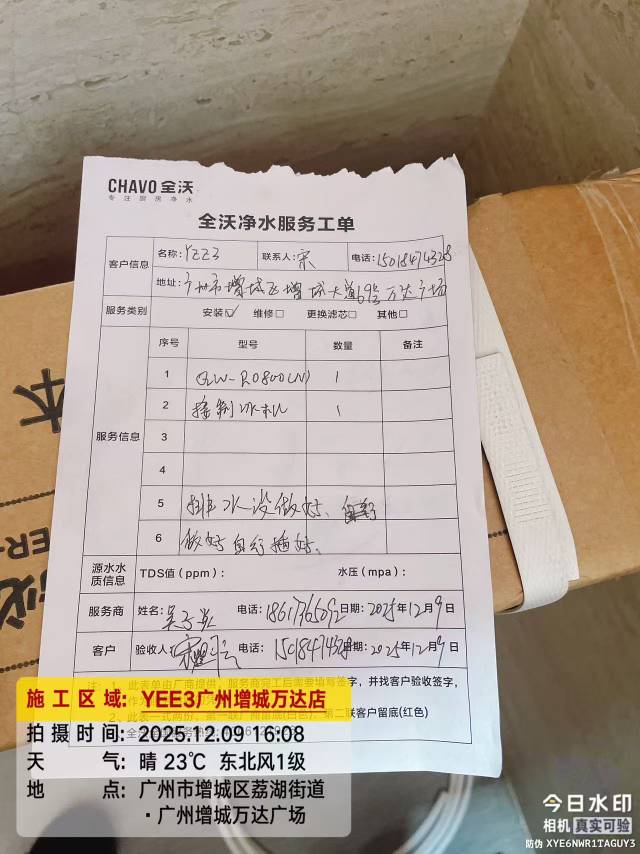 CHAVO 全沃
专注厨房净水
全沃净水服务工单
客户信息
名称: YZZ3 联系人: 宋 电话: 15018474328
地址: 广州市增城区增城大道69号万达广场
服务类别 安装☑ 维修□ 更换滤芯□ 其他□
服务信息
序号 型号 数量 备注
1 QW-RO800(N) 1
2 接制冰机 1
3
4
5 排水没做好、自行
6 做好自行插好、
源水水质信息 TDS值（ppm）: 水压（mpa）:
服务商 姓名: 电话: 日期: 2025年12月9日
客户 验收人: 电话: 日期: 2025年12月9日
注: 1、此表单由厂商提供，服务商完工后需要填写签字，并找客户验收签字，
2、此表一式两份，第一联厂商留底(白色)，第二联客户留底(红色)
施工区域: YEE3广州增城万达店
拍摄时间: 2025.12.09 16:08
天气: 晴 23℃ 东北风1级
地点: 广州市增城区荔湖街道
·广州增城万达广场
今日水印
相机 真实可验
防伪 XYE6NWR1TAGUY3